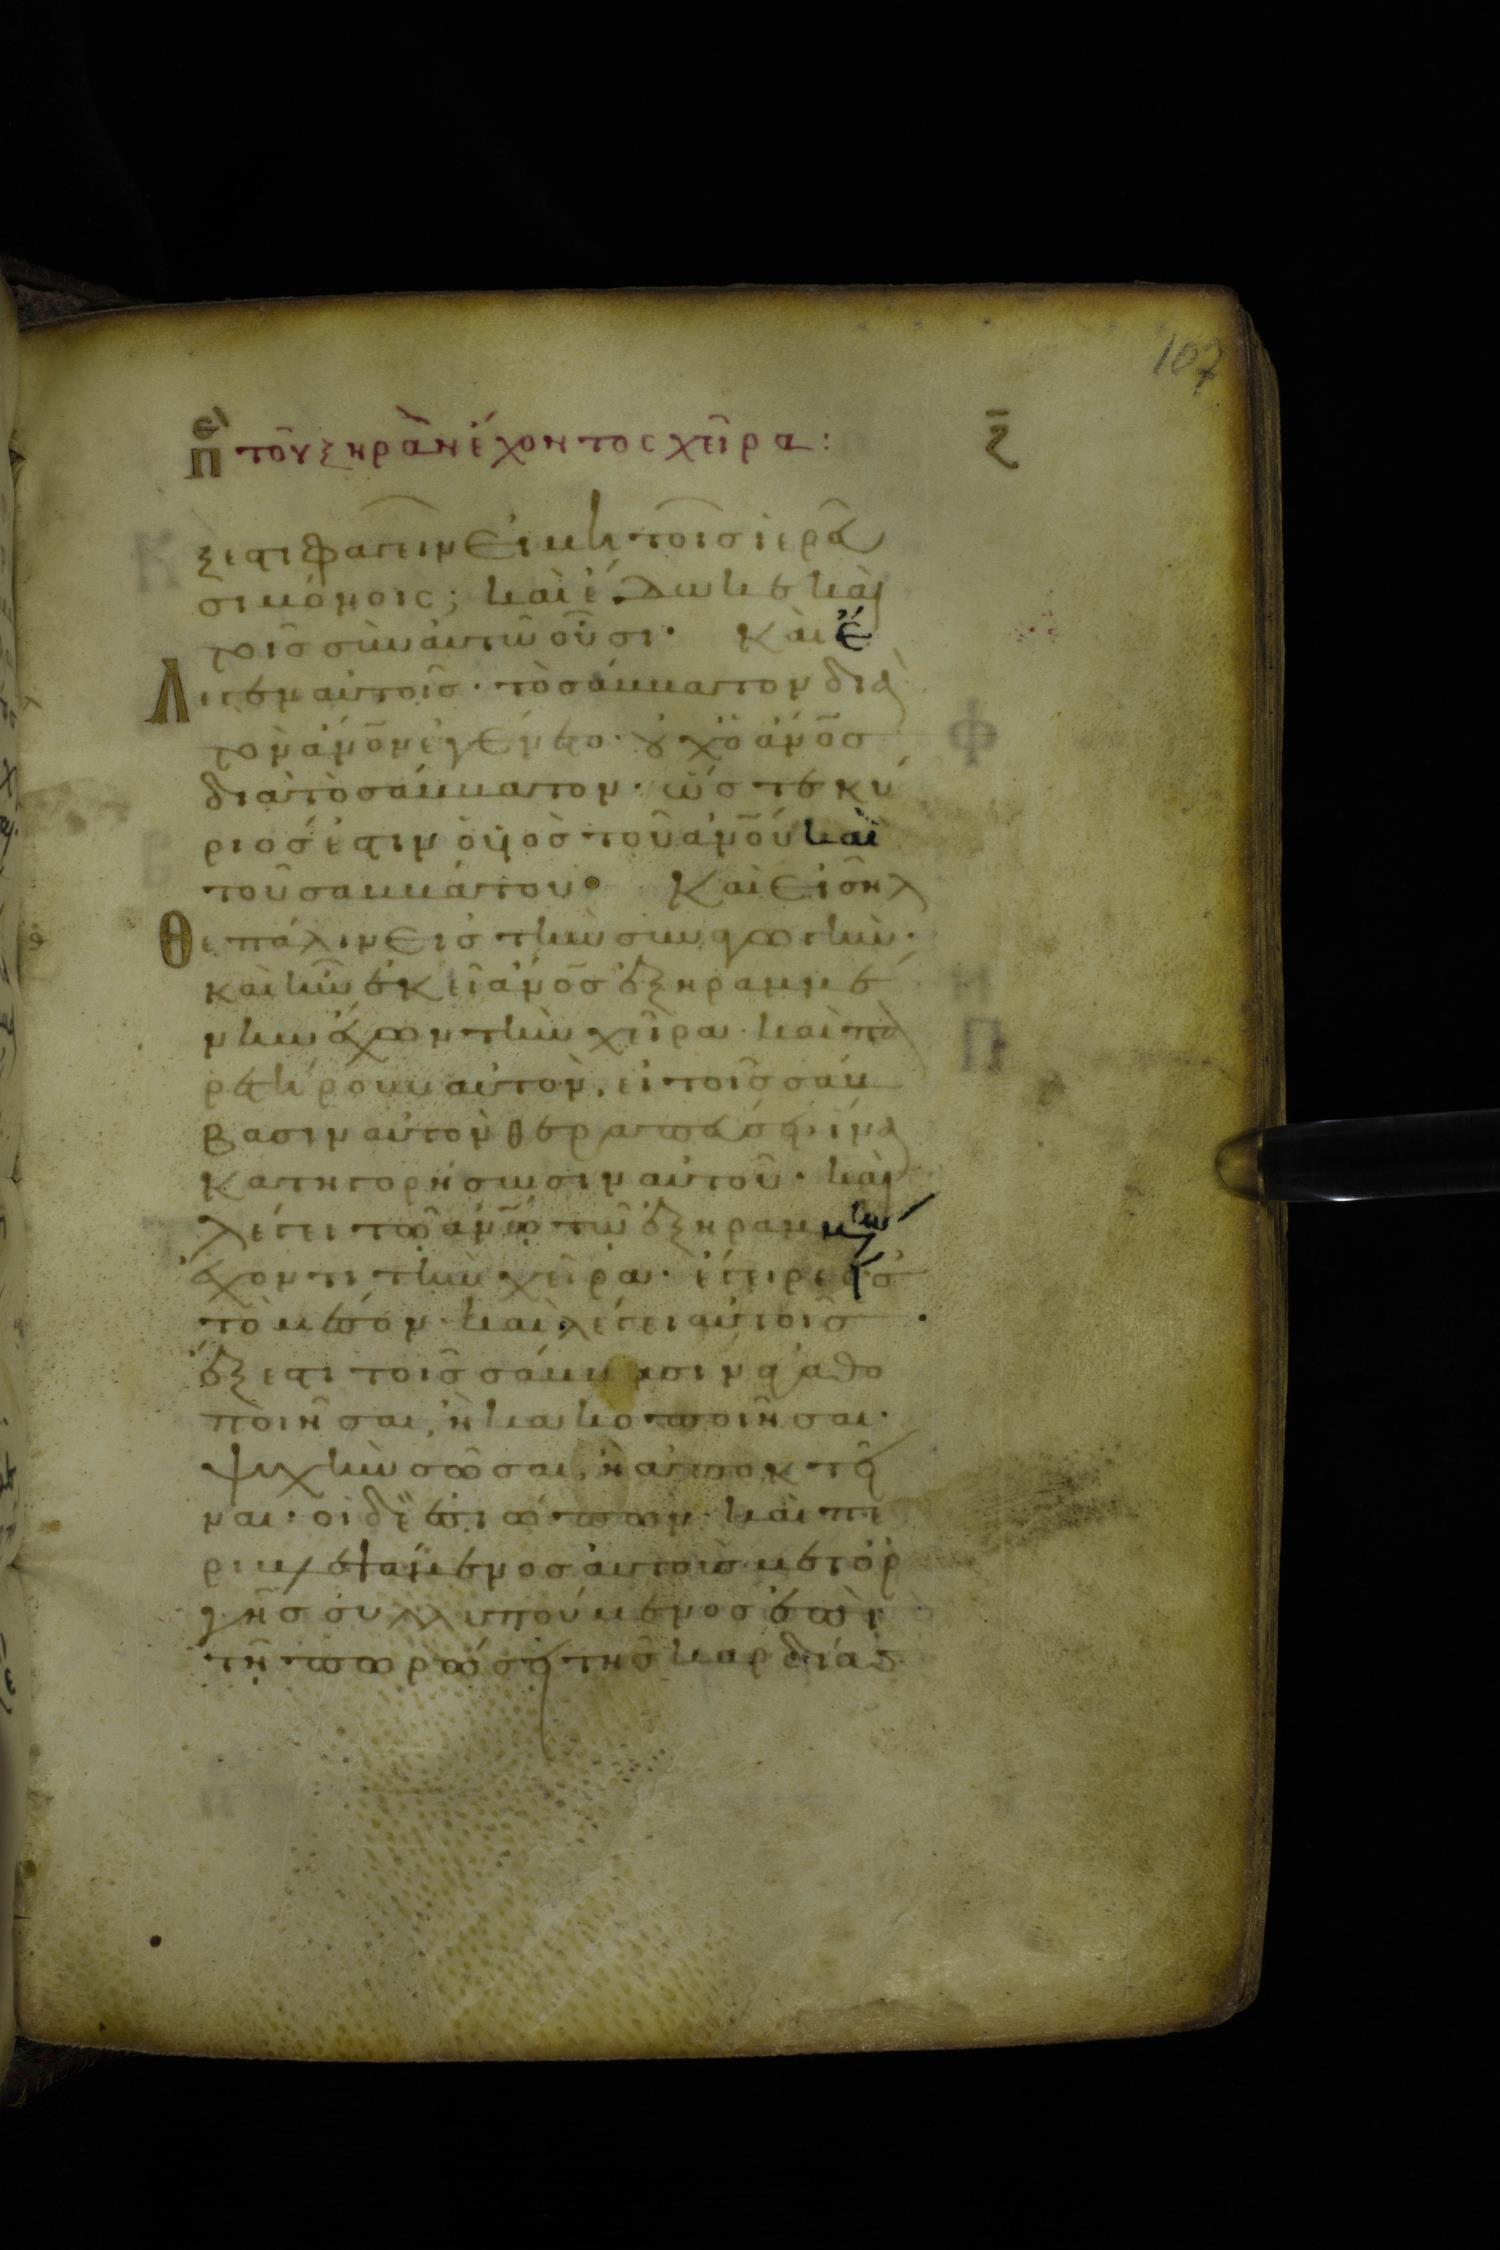 107
Πε τοῦ ξηρὰν ἔχοντος χεῖρα: ζ̄
ξεστι φαγεῖν εἰ μὴ τοῖς ἱερεῦ
σι μόνοις; καὶ ἔδωκε καὶ
τοῖς σὺν αὐτῷ οὖσι· Καὶ ἔ
λεγεν αὐτοῖς· τὸ σάββατον διὰ
τὸν ἄνον ἐγένετο· οὐχ ὁ ἄνος
διὰ τὸ σάββατον· ὥστε κύ
ριός ἐστιν ὁ υἱὸς τοῦ ἀνου καὶ
τοῦ σαββάτου· Καὶ εἰσῆλ
θε πάλιν εἰς τὴν συναγωγήν·
καὶ ἦν ἐκεῖ ἄνος ἐξηραμμέ
νην ἔχων τὴν χεῖρα· καὶ πα
ρετήρουν αὐτὸν, εἰ τοῖς σάβ
βασιν αὐτὸν θεραπεύσει· ἵνα
κατηγορήσωσιν αὐτοῦ· καὶ
λέγει τῷ ἀνῳ τῷ ἐξηραμμένην
ἔχοντι τὴν χεῖρα· ἔγειρε εἰς
τὸ μέσον· καὶ λέγει αὐτοῖς
ἔξεστι τοῖς σάββασιν ἀγαθο
ποιῆσαι, ἢ κακοποιῆσαι·
ψυχὴν σῶσαι, ἢ ἀποκτεῖ
ναι· οἱ δὲ ἐσιώπων· καὶ πε
ριβλεψάμενος αὐτοὺς μετ' ὀρ
γῆς συλλυπούμενος ἐπὶ
τῇ πωρώσει τῆς καρδίας